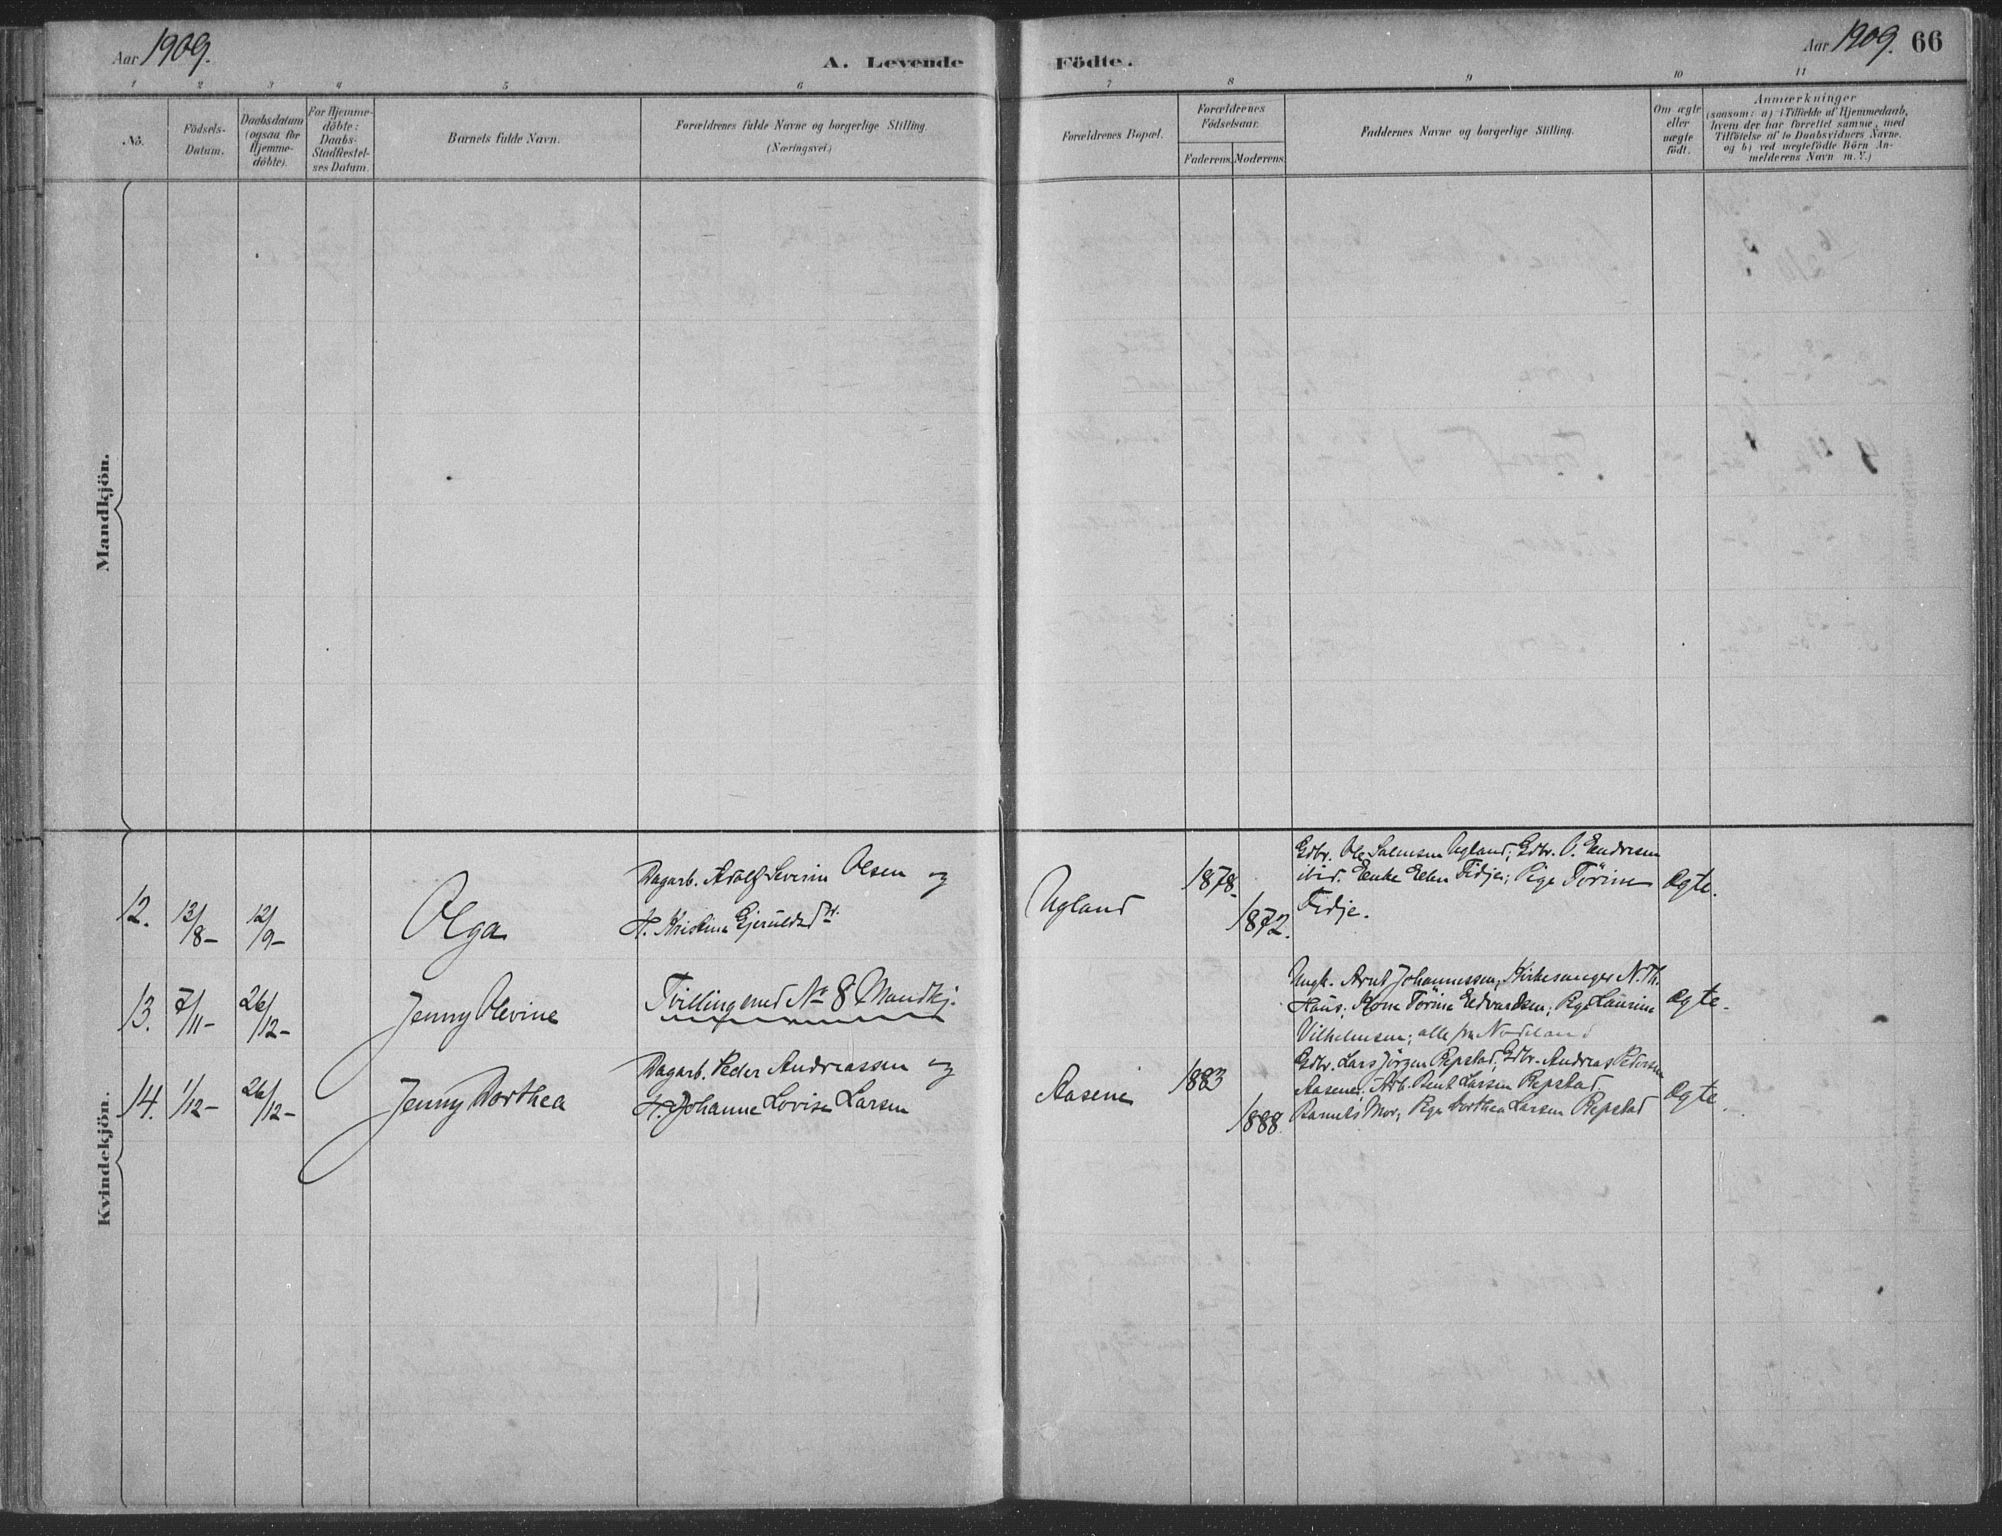 Aar 1909.
A. Levende
Födte.
Aar 1909. 66
1 2 3 4 5 6 7 8 9 10 11
No.
Födsels-
Datum.
Daabsdatum
(ogsaa for
Hjemme-
döbte).
For Hjemme-
döbte:
Daabs-
Stadfæstel-
ses Datum.
Barnets fulde Navn.
Forældrenes fulde Navne og borgerlige Stilling.
(Næringsvei.)
Forældrenes Bopæl.
Forældrenes
Födselsaar.
Faderens. Moderens.
Faddernes Navne og borgerlige Stilling.
Om ægte
eller
uægte
födt.
Anmærkninger
(saasom: a) i Tilfælde af Hjemmedaab,
hvem der har forrettet samme, med
Tilföielse af to Daabsvidners Navne.
og b) ved uægtefödte Börn An-
melderens Navn m. V.)
Mandkjön.
Kvindekjön.
12. 13/8- 12/9- Olga
Dagarb. Adolf Severin Olsen og
H. Kristine Gjeruldsdtr.
Ugland
1878-
1872.
Gdbr. Ole Salvesen Ugland; Gdbr. O. Endresen
ibid. Enke Ellen Fidje; Pige Törine
Fidje.
Ægte.
13. 7/11- 26/12- Jenny Olevine
Tvilling med No 8 Mandkj.
Ungk. Arnt Johannessen, Kirkesanger N. Th.
Haus; Kone Törine Edvardsen; Pige Laurine
Vilhelmsen; alle fra Nodeland
Ægte.
14. 1/12- 26/12- Jenny Dorthea
Dagarb. Peder Andreassen og
H. Johanne Lovise Larsen
Aasene
1883
1888.
Gdbr. Lars Jörgen Repstad; Gdbr. Andreas Pedersen
Aasene; Arb. Bent Larsen Repstad.
Barnets Mor; Pige Dorthea Larsen Repstad
Ægte.